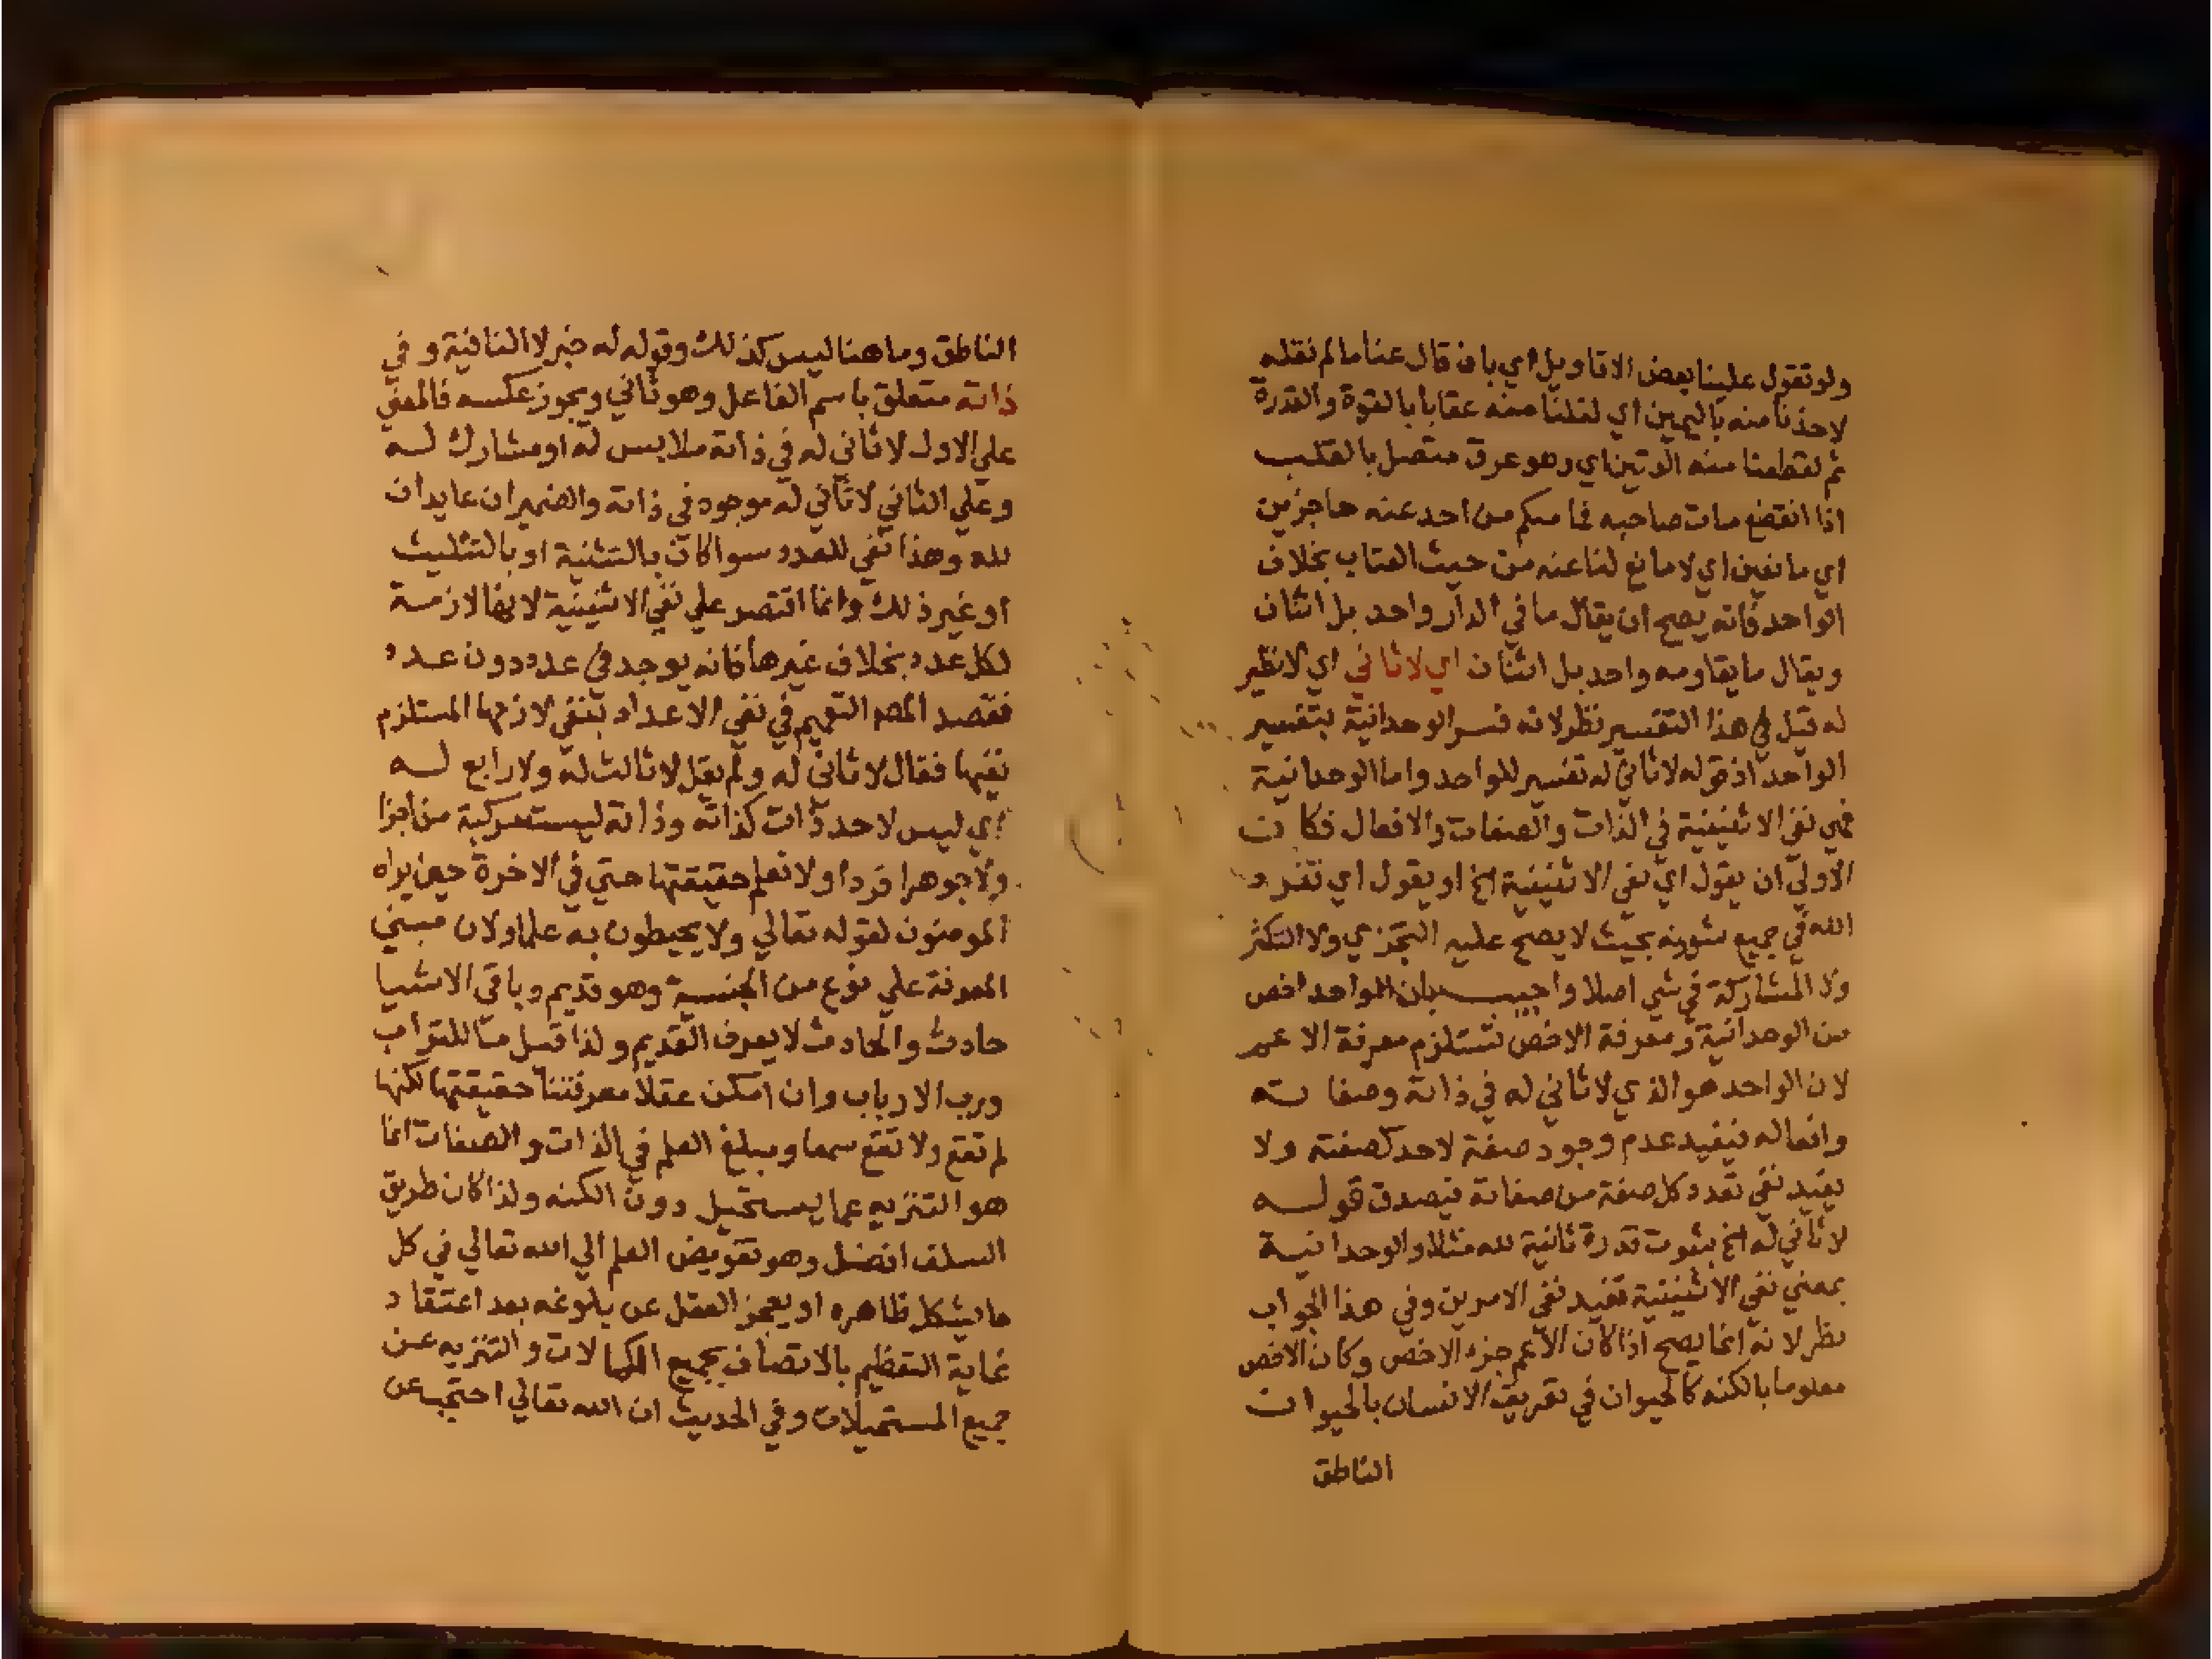 ولو تقول علينا بعض الاقاويل اي بان قال عنا ما لم نقله
لاخذنا منه باليمين اي لنلنا منه عقابا بالقوة والقدرة
ثم لقطعنا منه الوتين اي وهو عرق متصل بالقلب
اذا انقطع مات صاحبه فما منكم من احد عنه حاجزين
اي مانعين اي لا مانع لنا عنه من حيث العتاب بخلاف
الواحد فانه يصح ان يقال ما في الدار واحد بل اثنان
ويقال ما يقاومه واحد بل اثنان اي لا ثاني اي لا نظير
له قيل في هذا التفسير نظر لانه فسر الوحدانية بتفسير
الواحد اذ قوله لا ثاني له تفسير للواحد واما الوحدانية
فهي نفي الاثنينية في الذات والصفات والافعال فكان
الاولي ان يقول اي نفي الاثنينية الخ او يقول اي تفرد
الله في جميع شؤنه بحيث لا يصح عليه التجزي ولا التكثر
ولا المشاركة في شي اصلا واجيب بان الواحد اخص
من الوحدانية ومعرفة الاخص تستلزم معرفة الاعم
لان الواحد هو الذي لا ثاني له في ذاته وصفاته
وافعاله فيفيد عدم وجود صفة لاحد كصفته ولا
يفيد نفي تعدد كل صفة من صفاته فيصدق قوله
لا ثاني له الخ بثبوت قدرة ثانية لله مثلا والوحدانية
بمعني نفي الاثنينية تفيد نفي الامرين وفي هذا الجواب
نظر لانه انما يصح اذا كان الاعم جزء الاخص وكان الاخص
معلوما بالكنه كالحيوان في تعريف الانسان بالحيوان
الناطق
الناطق وما هنا ليس كذلك وقوله له خبر لا النافية وفي
ذاته متعلق باسم الفاعل وهو ثاني ويجوز عكسه فالمعني
علي الاول لا ثاني له في ذاته ملابس له او مشارك له
وعلي الثاني لا ثاني له موجود في ذاته والضميران عايدان
لله وهذا نفي للعدد سوا كان بالتثنية او بالتثليث
او غير ذلك وانما اقتصر علي نفي الاثنينية لانها لازمة
لكل عدد بخلاف غيرها فانه يوجد في عدد دون عدد
فقصد المص التعميم في نفي الاعداد بنفي لازمها المستلزم
نفيها فقال لا ثاني له ولم يقل لا ثالث له ولا رابع له
اي ليس لاحد ذات كذاته وذاته ليست مركبة من اجزا
ولا جوهرا فردا ولا نعلم حقيقتها حتي في الاخرة حين يراه
المومنون لقوله تعالي ولا يحيطون به علما ولان مبني
المعرفة علي نوع من الجنسية وهو قديم وباقي الاشيا
حادث والحادث لا يعرف القديم ولذا قيل ما للتراب
ورب الارباب وان امكن عقلا معرفتنا حقيقتها لكنها
لم تقع ولا تقع سمعا ومبلغ العلم في الذات والصفات انما
هو التنزيه عما يستحيل دون الكنه ولذا كان طريق
السلف افضل وهو تفويض العلم الي الله تعالي في كل
ما يشكل ظاهره او يعجز العقل عن بلوغه بعد اعتقاد
غاية التعظيم بالاتصاف بجميع الكمالات والتنزيه عن
جميع المستحيلات وفي الحديث ان الله تعالي احتجب عن